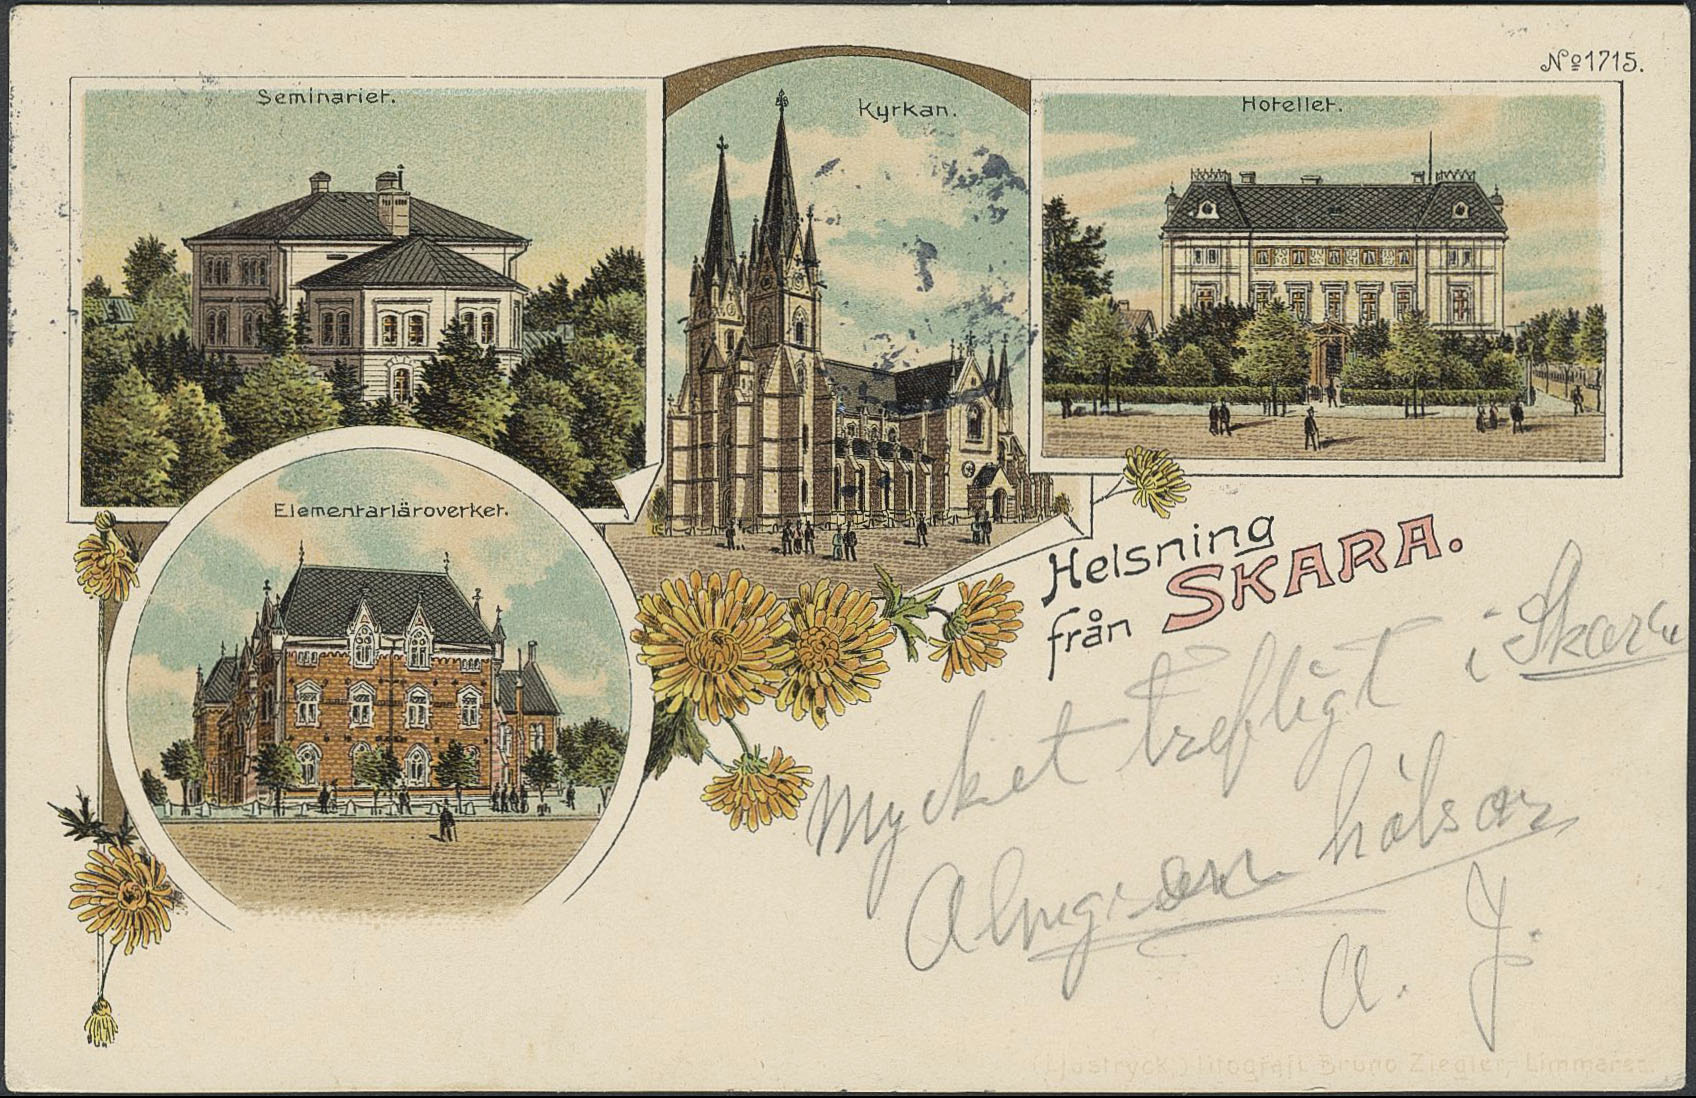 No 1715.
Seminariet.
Kyrkan.
Hotellet.
Elementarläroverket.
Helsning
från SKARA.
Mycket trefligt i Skara
hälsar
A. J.
(Ljustryck.) Litografi Bruno Ziegler, Limmared.